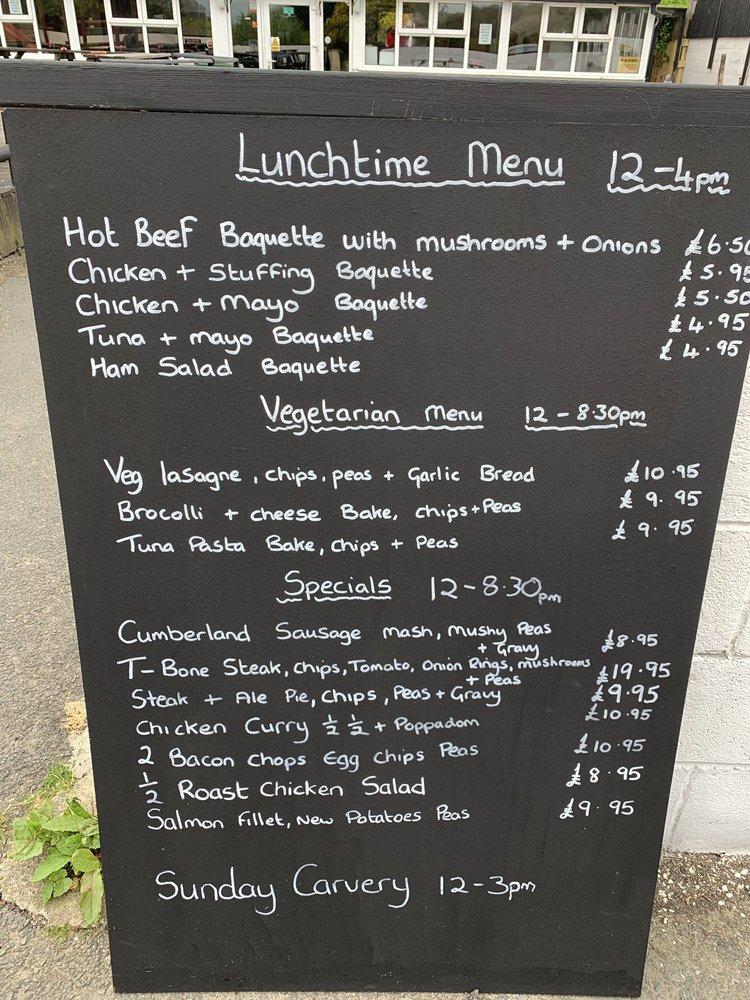 Lunchtime Menu 12-4pm
Hot Beef Baquette with mushrooms + Onions £6.50
Chicken + Stuffing Baquette £5.95
Chicken + Mayo Baquette £5.50
Tuna + mayo Baquette £4.95
Ham Salad Baquette £4.95
Vegetarian Menu 12-8.30pm
Veg lasagne, chips, peas + Garlic Bread £10.95
Brocolli + cheese Bake, chips + Peas £9.95
Tuna Pasta Bake, chips + Peas £9.95
Specials 12-8.30pm
Cumberland Sausage mash, mushy Peas £8.95
+ Gravy
T-Bone Steak, chips, Tomato, Onion Rings, mushrooms £19.95
+ Peas
Steak + Ale Pie, chips, Peas + Gravy £9.95
Chicken Curry ½ ½ + Poppadom £10.95
2 Bacon chops Egg chips Peas £10.95
½ Roast Chicken Salad £8.95
Salmon fillet, New Potatoes Peas £9.95
Sunday Carvery 12-3pm